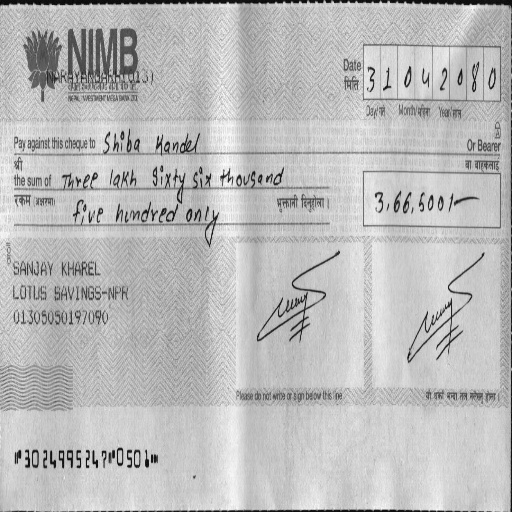 NIMB
NARAYANGARH(013)
NEPAL INVESTMENT MEGA BANK LTD.
Date
मिति
3 1 0 4 2 0 8 0
Day/गते Month/महिना Year/साल
Pay against this cheque to Shiba Kandel Or Bearer
श्री वा वाहकलाई
the sum of Three lakh Sixty Six thousand
रकम (अक्षरमा) five hundred only भुक्तानी दिनुहोला।
3,66,500/-
SANJAY KHAREL
LOTUS SAVINGS-NPR
01305050197090
Please do not write or sign below this line
⑈3024995247⑈0506⑈